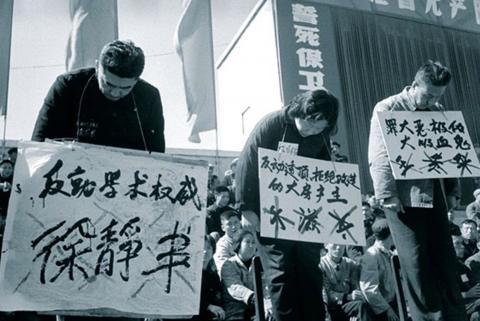 誓死保卫
反动学术权威
徐静书
反动透顶拒绝改造
的大房产主
罪大恶极的
大吸血鬼